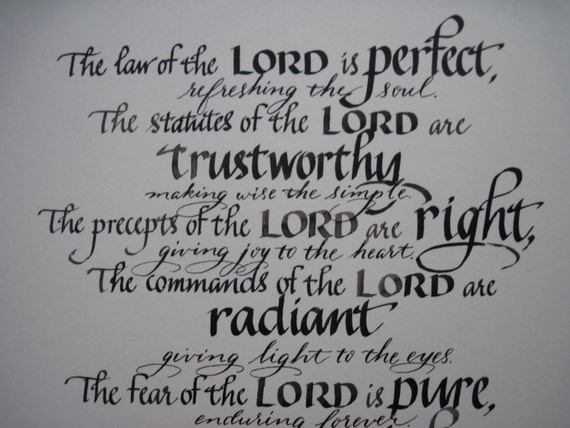 The law of the LORD is perfect,
refreshing the soul.
The statutes of the LORD are
trustworthy
making wise the simple.
The precepts of the LORD are right,
giving joy to the heart.
The commands of the LORD are
radiant
giving light to the eyes.
The fear of the LORD is pure,
enduring forever.